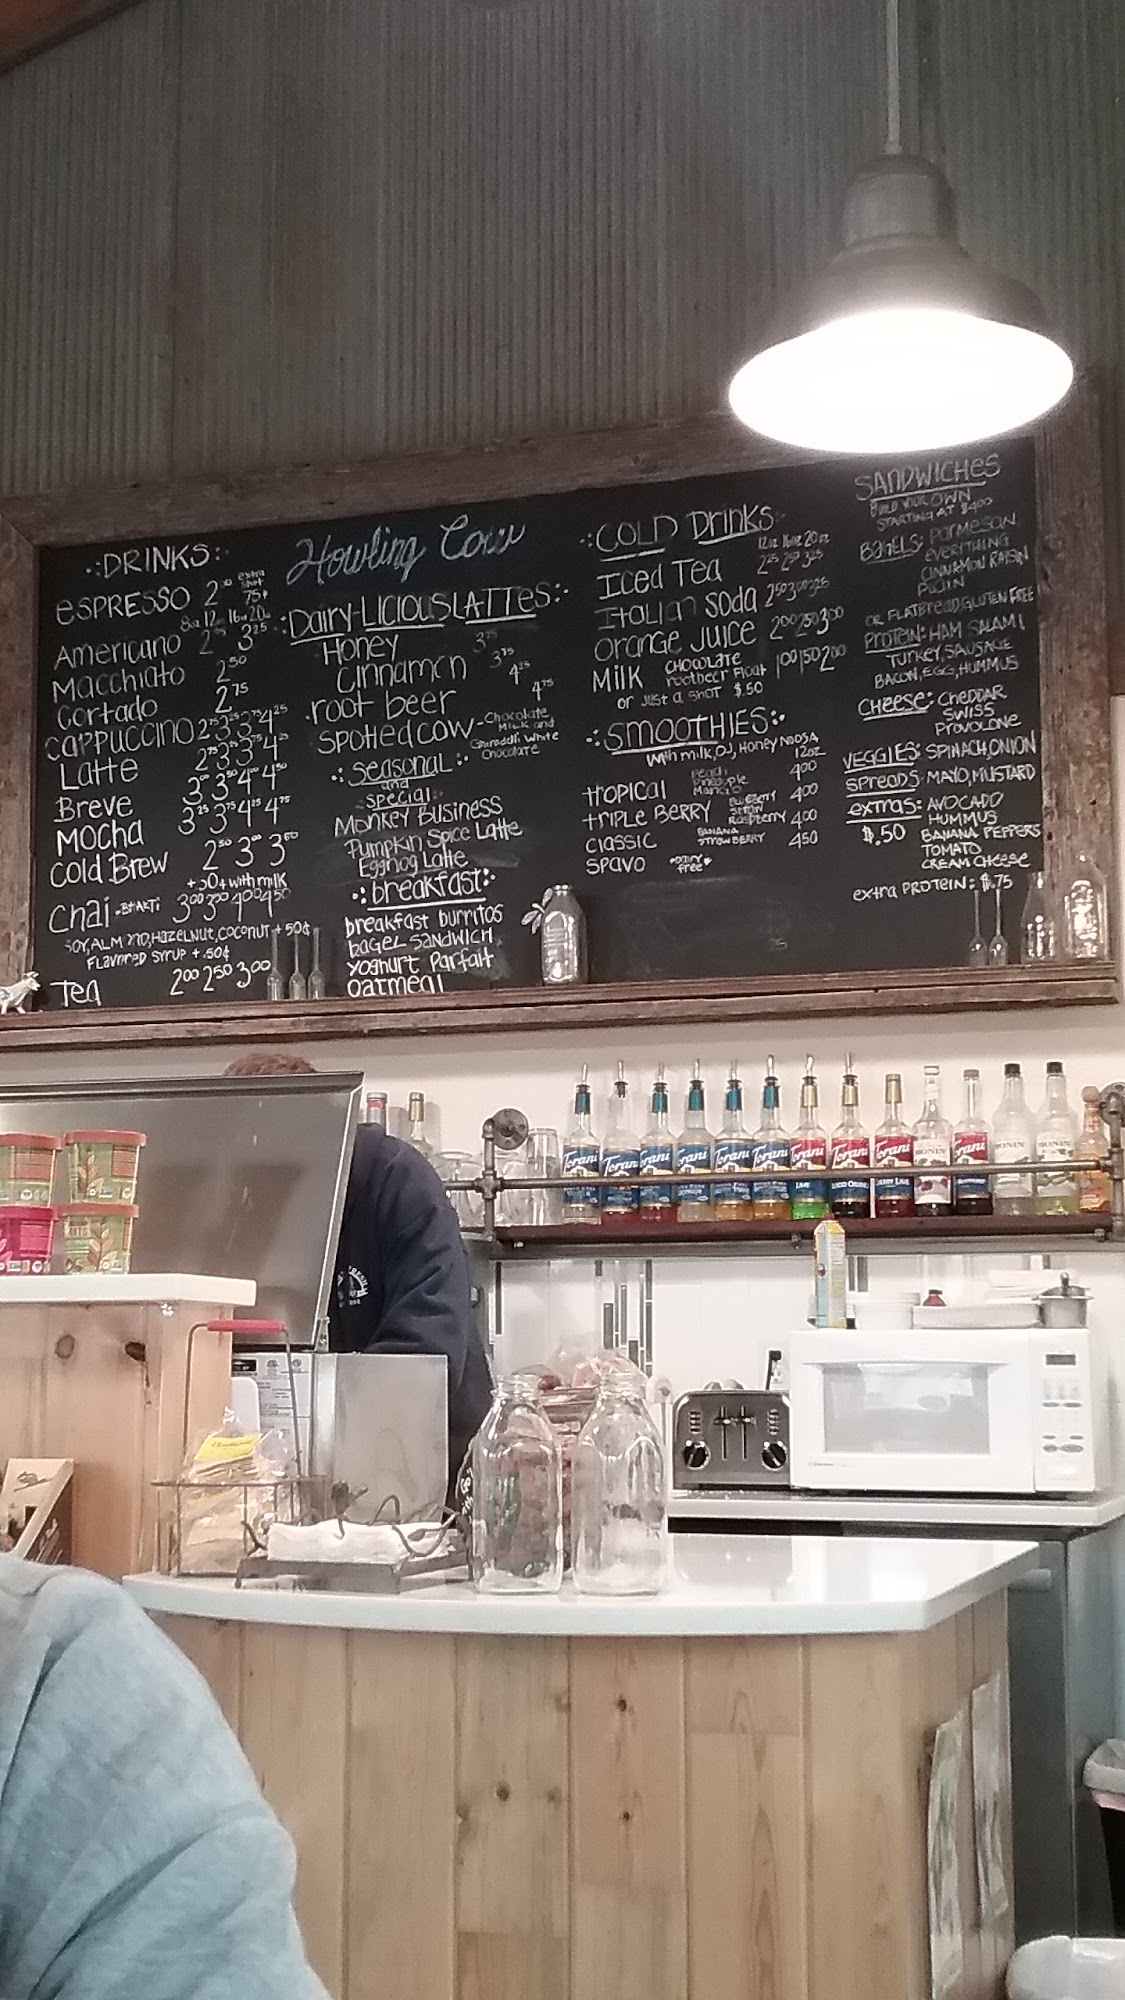 DRINKS
ESPRESSO 2⁰⁰ extra shot 75¢
8oz 12oz 16oz 20oz
Americano 2²⁵ 3²⁵
Macchiato 2⁵⁰
Cortado 2⁷⁵
cappuccino 2⁷⁵ 3²⁵ 3⁷⁵ 4²⁵
Latte 2⁷⁵ 3²⁵ 3⁷⁵ 4²⁵
Breve 3⁰⁰ 3⁵⁰ 4⁰⁰ 4⁵⁰
Mocha 3²⁵ 3⁷⁵ 4²⁵ 4⁷⁵
Cold Brew 2⁵⁰ 3⁰⁰ 3⁵⁰
+50¢ with milk
Chai -BHAKTI 3⁰⁰ 3⁵⁰ 4⁰⁰ 4⁵⁰
SOY, ALMOND, HAZELNUT, COCONUT + 50¢
FLAVORED SYRUP + .50¢
Tea 2⁰⁰ 2⁵⁰ 3⁰⁰
Howling Cow
Dairy-LICIOUS LATTES
Honey 3⁷⁵
Cinnamon 3⁷⁵
root beer 4²⁵
Spotted cow 4⁷⁵
-Chocolate Milk and
Ghiradelli White
Chocolate
Seasonal
and
special
Monkey Business
Pumpkin Spice Latte
Eggnog Latte
breakfast
breakfast burritos
bagel sandwich
yoghurt parfait
oatmeal
COLD Drinks
12oz 16oz 20oz
Iced Tea 2²⁵ 2⁷⁵ 3²⁵
Italian soda 2⁵⁰ 3⁰⁰ 3²⁵
Orange Juice 2⁰⁰ 2⁵⁰ 3⁰⁰
Milk CHOCOLATE rootbeer Float 1⁰⁰ 1⁵⁰ 2⁰⁰
or JUST a SHOT $.50
SMOOTHIES
with milk, OJ, Honey NOOSA
12oz
tropical Peach Pineapple Mango 4⁰⁰
triple BERRY BLUEBERRY STRAW Raspberry 4⁰⁰
classic BANANA STRAWBERRY 4⁰⁰
SPAVO *DAIRY free* 4⁵⁰
SANDWICHES
BUILD YOUR OWN
STARTING AT $4.00
BAGELS: PARMESAN
EVERYTHING
CINNAMON RAISIN
PLAIN
OR FLATBREAD, GLUTEN FREE
PROTEIN: HAM SALAMI
TURKEY, SAUSAGE
BACON, EGG, HUMMUS
CHEESE: CHEDDAR
SWISS
PROVOLONE
VEGGIES: SPINACH, ONION
SPREADS: MAYO, MUSTARD
extras: AVOCADO
$.50 HUMMUS
BANANA PEPPERS
TOMATO
CREAM CHEESE
extra PROTEIN: $.75
Torani
Torani
Torani
Torani
Torani
Torani
Torani
LIME
Torani
Torani
MONIN
Torani
MONIN
MONIN